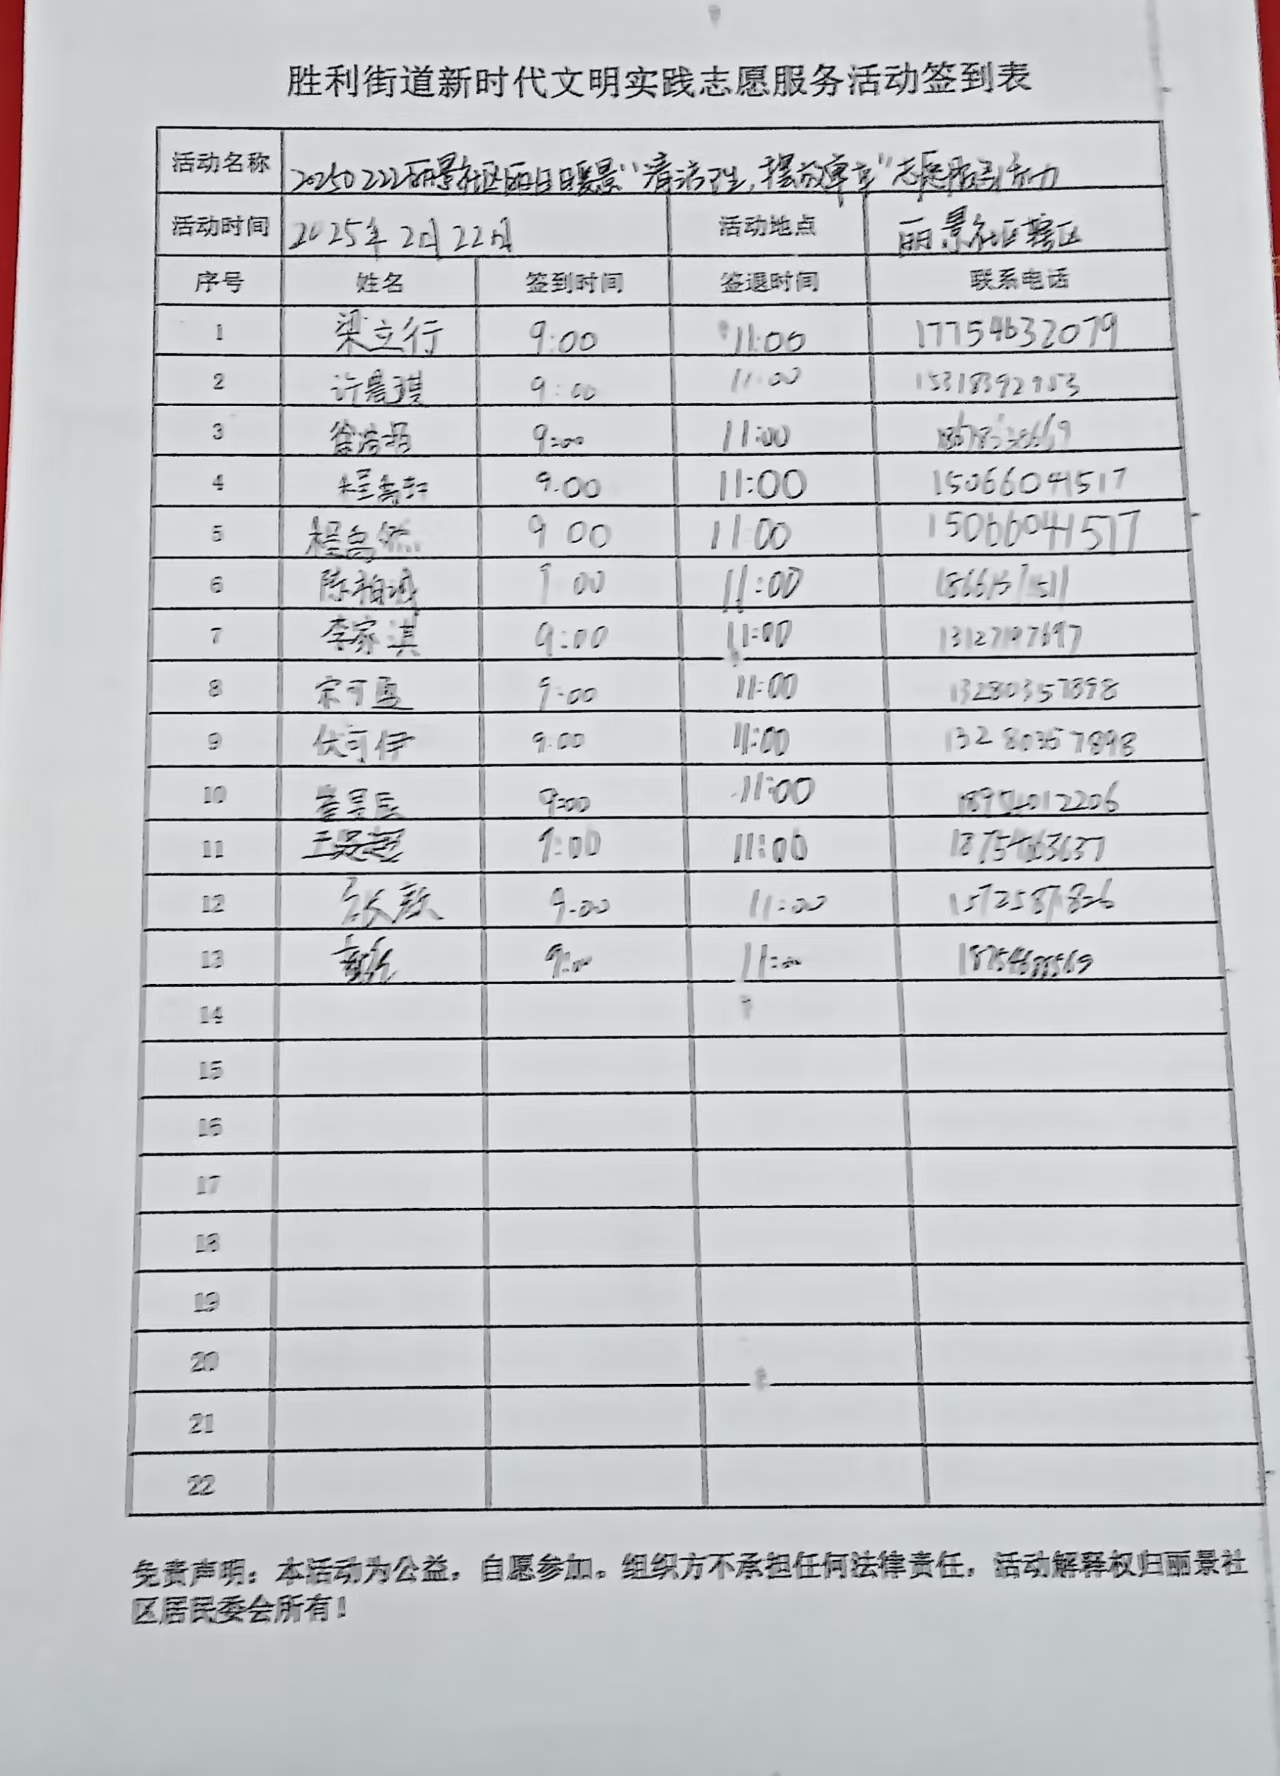 胜利街道新时代文明实践志愿服务活动签到表
活动名称 20250222丽景社区丽日暖景"清洁 理,摆放单车"志愿服务活动
活动时间 2025年2月22日 活动地点 丽景社区辖区
序号 姓名 签到时间 签退时间 联系电话
1 梁立行 9:00 11:00 17754632079
2 许景琪 9:00 11:00
3 9:00 11:00
4 9:00 11:00 15066041517
5 9 00 11:00 15066041517
6 陈柏诚 9:00 11:00
7 李家淇 9:00 11:00
8 宋可盈 9:00 11:00 13280357898
9 伏可伊 9:00 11:00 13280357898
10 崔昱辰 9:00 11:00 18954012206
11 王昊超 9:00 11:00
12 9:00 11:00
13 9:00 11:00
14
15
16
17
18
19
20
21
22
免责声明:本活动为公益,自愿参加。组织方不承担任何法律责任,活动解释权归丽景社
区居民委会所有!